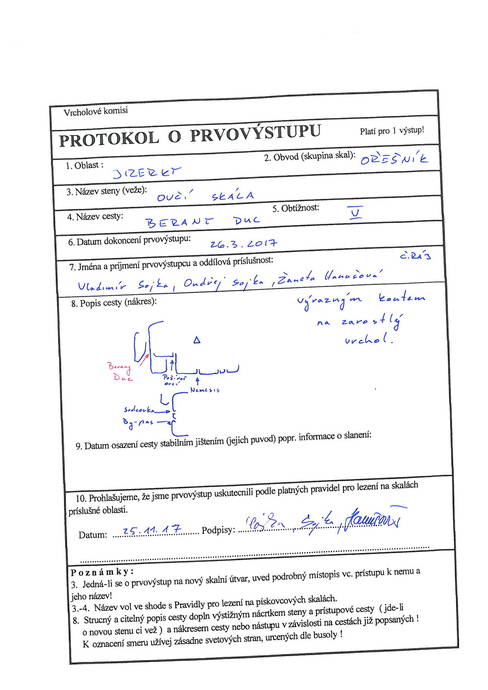 Vrcholové komisi
PROTOKOL O PRVOVÝSTUPU Platí pro 1 výstup!
1. Oblast : JIZERKY 2. Obvod (skupina skal): OŘEŠNÍK
3. Název steny (veže): OVČÍ SKÁLA
4. Název cesty: BERANÍ DUC 5. Obtížnost: V
6. Datum dokoncení prvovýstupu: 26.3.2017
7. Jména a prijmení prvovýstupcu a oddílová príslušnost: ČRÁS
Vladimír Sojka, Ondřej Sojka, Žaneta Hanušová
8. Popis cesty (nákres): výrazným koutem
na zarostlý
vrchol.
Beraní
Duc
Nemesis
Sadcovka
By-pas
9. Datum osazení cesty stabilním jištením (jejich puvod) popr. informace o slanení:
10. Prohlašujeme, že jsme prvovýstup uskutecnili podle platných pravidel pro lezení na skalách
príslušné oblasti.
Datum: 25.11.17 Podpisy: Sojka, Sojka, Hanušová
Poznámky:
3. Jedná-li se o prvovýstup na nový skalní útvar, uved podrobný místopis vc. prístupu k nemu a
jeho název!
3.-4. Název vol ve shode s Pravidly pro lezení na pískovcových skalách.
8. Strucný a citelný popis cesty dopln výstižným nácrtkem steny a prístupové cesty ( jde-li
o novou stenu ci vež ) a nákresem cesty nebo nástupu v závislosti na cestách již popsaných !
K oznacení smeru užívej zásadne svetových stran, urcených dle busoly !